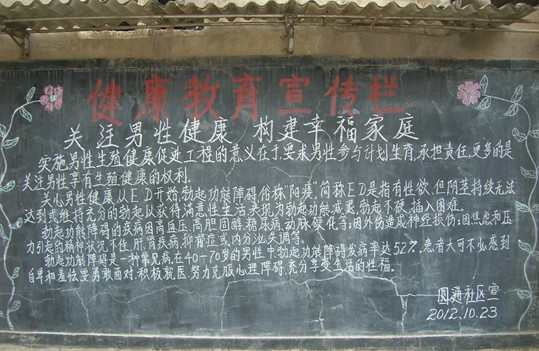 健康教育宣传栏
关注男性健康 构建幸福家庭
实施男性生殖健康促进工程的意义在于,要求男性参与计划生育,承担责任,更多的是
关注男性享有生殖健康的权利。
关心男性健康从ED开始,勃起功能障碍俗称"阳痿",简称ED是指有性欲,但阴茎持续无法
达到或维持充分的勃起以获得满意性生活表现为勃起功能减累,勃起不硬,插入困难。
勃起功能障碍的疾病因高血压、高胆固醇、糖尿病、动脉硬化等;因外伤造成神经损伤;因焦虑和压
力引起的精神状况不佳,肝、肾疾病,抑郁症或内分泌失调等。
勃起功能障碍是一种常见病,在40-70岁的男性中勃起功能障碍发病率达52%,患者大可不必感到
自卑和羞怯,要勇敢面对,积极就医,努力克服心理障碍,充分享受生活的性福。
圆通社区宣
2012.10.23